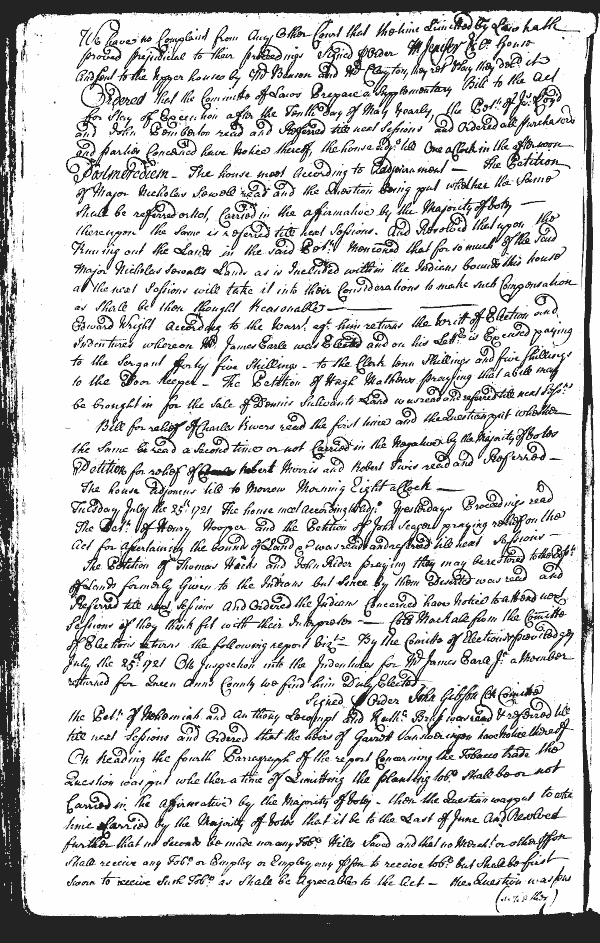 We have no Complaint from Any Other Court that the time Limitted by Law hath
proved prejudicial to their proceedings Signed Order M Jenifer Cl. House
And sent to the upper house by Mr Beason and Mr Clayton, they ret. & say they deld. it
Ordered that the Committee of Laws Prepare a Supplementary Bill to the Act
for Stay of Execution after the Tenth Day of May Yearly, the Petn. of Lloyd
and John Pemberton read and Referred till next Sessions and Ordered all purchasers
and parties Concerned have notice thereof, the house adjs. till One a Clock in the afternoon
Postmeridiem - The house meet According to Adjournment - the Petition
of Major Nicholas Sewell read and the Question being put whether the Same
shall be referred or Not, Carried in the affirmative by the Majority of Votes -
thereupon the Same is referred till next Sessions. And Resolved that upon the
Running out the Lands in the said Petn. Mentioned that for so much of the said
Major Nicholas Sewells Lands as is Included within the Indians bounds this house
at the next Sessions will take it into their Considerations to make such Compensation
as shall be then thought Reasonable -
Edward Wright According to the Warrt. agt. him returns the Writ of Election and
Indentures whereon Mr James Earle was Elected and on his is Excused paying
to the Sergant forty five Shillings - to the Clerk tenn Shillings and five shillings
to the Door Keeper - The Petition of Hugh Mathews praying that a bill may
be brought in for the Sale of Dennis Sulivants Land was read and referred till next Sesss.
Bill for relief of Charles Rivers read the first time and the Question put whether
the Same be read a Second time or not Carried in the Negative by the Majority of Votes
Petition for relief of Robert Morris and Robert Ivis read and Referred -
The house adjourns till to Morrow Morning Eight a Clock -
Tuesday July the 25th. 1721 The house meet According to adjt. Yesterdays Proceedings read
The Petn. of Henry Hooper and the Petition of John Seagers praying relief on the
Act for Ascertaining the bounds of Land &c. was read and referred till next Sessions -
The Petition of Thomas Hicks and John Rider praying they may be restored to the Possn.
of Lands formerly Given to the Indians but since by them Deserted was read and
Referred till next Sessions And Ordered the Indians Concerned have Notice to attend next
Sessions if they think fit with their Interpreter - Colo Mackall from the Comittee
of Elections returns the following report Vizt. - By the Comitte of Elections & priviledges
July the 25th. 1721 On Inspection into the Indentures for Mr James Earle Jr. a Member
returned for Queen Anns County we find him Duly Elected
Signed Order John Gibson Clk Comitte
the Petn. of Nehemiah and Anthony Lecompt and Ruth. was read & referred till
till next Sessions and Ordered that the heirs of Garret have Notice thereof
On Reading the fourth Paragraph of the report Concerning the Tobacco trade the
Question was put whether a time of Limitting the planting tobo. shall be or not
Carried in the affirmative by the Majority of Votes - then the Question was put to what
time Carried by the Majority of Votes that it be to the Last of June And Resolved
further that no Seconds be made nor any Tobo. Hills Saved and that no Mercht. or other Person
Shall receive any Tobo. or Employ or Employ any person to receive tobo. but shall be first
sworn to receive Such Tobo. as Shall be Agreeable to the Act - the Question was